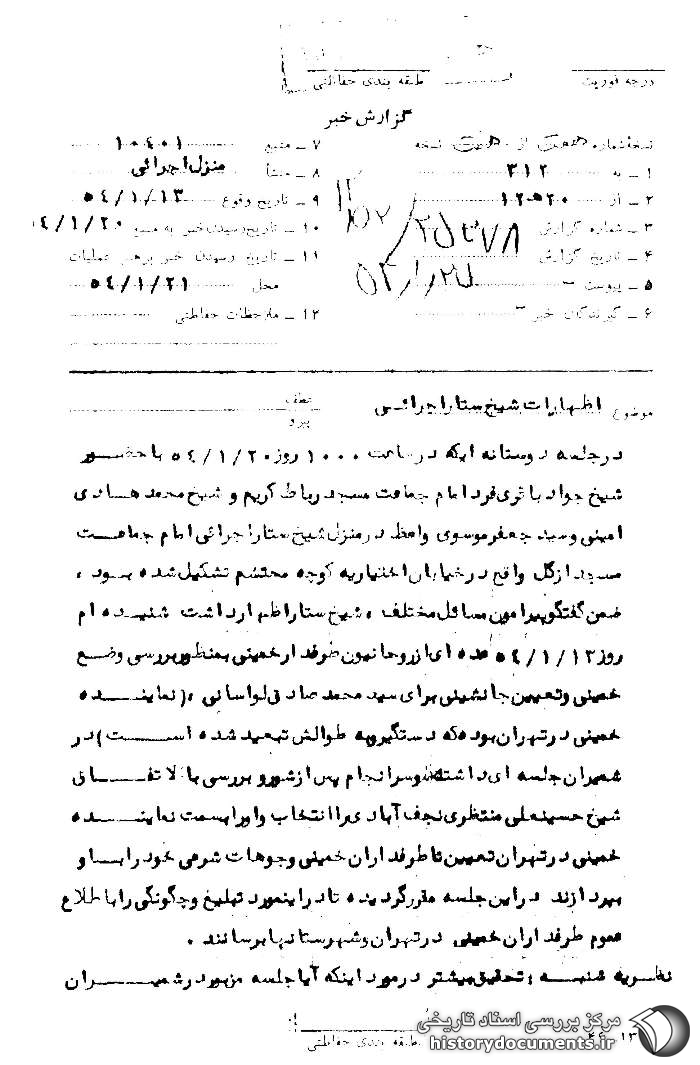 درجه فوریت
طبقه بندی حفاظتی
گزارش خبر
نسخه شماره هفت از هشت نسخه
۱ ـ به ۳۱۲
۲ ـ از ۲۰ه۱۲
۳ ـ شماره گزارش
۴ ـ تاریخ گزارش
۵ ـ پیوست ـ
۶ ـ گیرندگان خبر ـ
۷ ـ منبع ۱۰۴۰۱
۸ ـ منشأ منزل اجرائی
۹ ـ تاریخ وقوع ۵۴/۱/۱۳
۱۰ ـ تاریخ رسیدن خبر به منبع ۴/۱/۲۰
۱۱ ـ تاریخ رسیدن خبر برهبر عملیات
محل ۵۴/۱/۲۱
۱۲ ـ ملاحظات حفاظتی
موضوع اظهارات شیخ ستار اجرائی
عطف
پیرو
در جلسه دوستانه ایکه در ساعت ۱۰۰۰ روز ۵۴/۱/۲۰ با حضور
شیخ جواد باقری فرد امام جماعت مسجد رباط کریم و شیخ محمد هادی
امینی و سید جعفر موسوی واعظ در منزل شیخ ستار اجرائی امام جماعت
مسجد ازگل واقع در خیابان اختیاریه کوچه محتشم تشکیل شده بود ،
ضمن گفتگو پیرامون مسائل مختلف ، شیخ ستار اظهارداشت شنیده ام
روز ۵۴/۱/۱۳ عده ای از روحانیون طرفدار خمینی بمنظور بررسی وضع
خمینی و تعیین جانشینی برای سید محمد صادق لواسانی ، (نماینده
خمینی در تهران بوده که دستگیر و به طوالش تبعید شده است) در
شمیران جلسه ای داشته اند و سرانجام پس از شور و بررسی بالاتفاق
شیخ حسینعلی منتظری نجف آبادی را انتخاب و او را بسمت نماینده
خمینی در تهران تعیین تا طرفداران خمینی وجوهات شرعی خود را باو
بپردازند در این جلسه مقرر گردیده تا در اینمورد تبلیغ و چگونگی را باطلاع
عموم طرفداران خمینی در تهران و شهرستانها برسانند .
نظریه شنبه : تحقیق بیشتر در مورد اینکه آیا جلسه مزبور در شمیران
طبقه بندی حفاظتی
مرکز بررسی اسناد تاریخی
historydocuments.ir